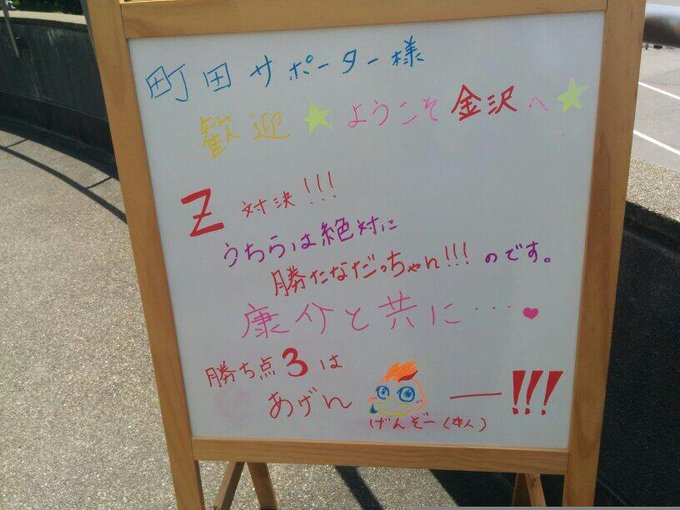 町田サポーター様
歓迎★ようこそ金沢へ★
Z 対決!!!
うちらは絶対に
勝たなだっちゃん!!!のです。
康介と共に…♥
勝ち点3は
あげん ー!!!
げんぞー(本人)